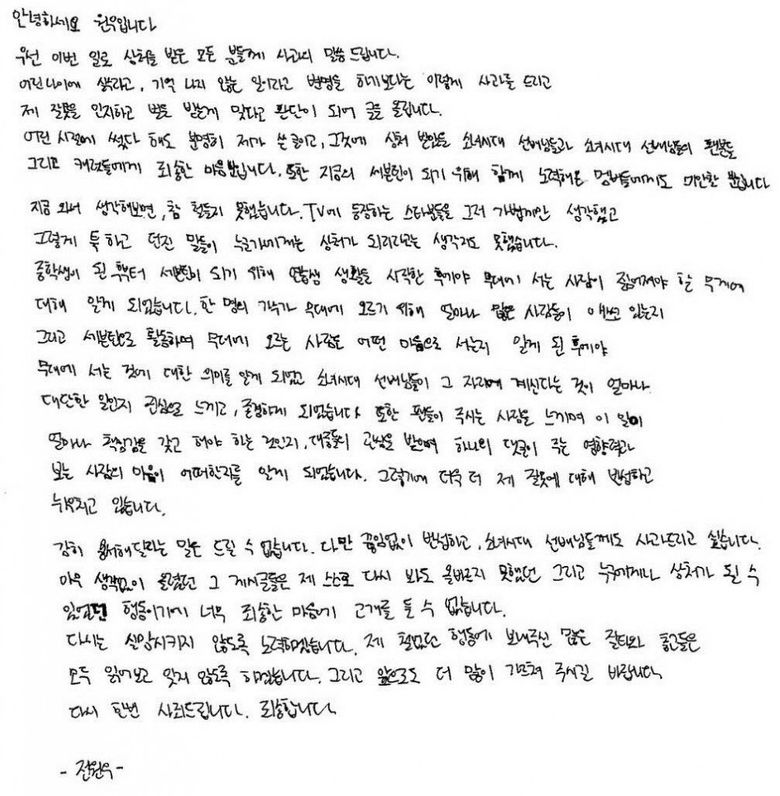 안녕하세요 원우입니다
우선 이번 일로 상처를 받은 모든 분들께 사과의 말씀 드립니다.
어린나이에 썼다고, 기억 나지 않는 일이라고 변명을 하기보다는 이렇게 사과를 드리고
제 잘못을 인지하고 벌을 받는게 맞다고 판단이 되어 글을 올립니다.
어린 시절에 썼다 해도 분명히 제가 쓴 글이고, 그것에 상처 받았을 소녀시대 선배님들과 소녀시대 선배님들의 팬분들
그리고 캐럿들에게 죄송한 마음뿐입니다. 또한 지금의 세븐틴이 되기 위해 함께 노력해온 멤버들에게도 미안할 뿐입니다
지금 와서 생각해보면, 참 철들지 못했습니다. TV에 등장하는 스타분들을 그저 가볍게만 생각했고
그렇게 툭 하고 던진 말들이 누군가에게는 상처가 되리라고는 생각지도 못했습니다.
중학생이 된 후부터 세븐틴이 되기 위해 연습생 생활을 시작한 후에야 무대에 서는 사람이 짊어져야 할 무게에
대해 알게 되었습니다. 한 명의 가수가 무대에 오르기 위해 얼마나 많은 사람들이 애쓰고 있는지
그리고 세븐틴으로 활동하며 무대에 오르는 사람은 어떤 마음으로 서는지 알게 된 후에야
무대에 서는 것에 대한 의미를 알게 되었고 소녀시대 선배님들이 그 자리에 계신다는 것이 얼마나
대단한 일인지 진심으로 느끼고, 존경하게 되었습니다 또한 팬들이 주시는 사랑을 느끼며 이 일이
얼마나 책임감을 갖고 해야 하는 것인지, 대중들의 관심을 받으며 하나의 댓글이 주는 영향력과
보는 사람의 마음이 어떠한지를 알게 되었습니다. 그렇기에 더욱 더 제 잘못에 대해 반성하고
뉘우치고 있습니다.
감히 용서해달라는 말은 드릴 수 없습니다. 다만 끊임없이 반성하고, 소녀시대 선배님들께도 사과드리고 싶습니다.
아무 생각없이 올렸던 그 게시글들은 제 스스로 다시 봐도 올바르지 못했던 그리고 누구에게나 상처가 될 수
있었던 행동이기에 너무 죄송한 마음에 고개를 들 수 없습니다.
다시는 실망시키지 않도록 노력하겠습니다. 제 철없던 행동에 보내주신 많은 질타와 충고들은
모두 읽어보고 잊지 않도록 하겠습니다. 그리고 앞으로도 더 많이 가르쳐 주시길 바랍니다
다시 한번 사죄드립니다. 죄송합니다.
- 전원우 -